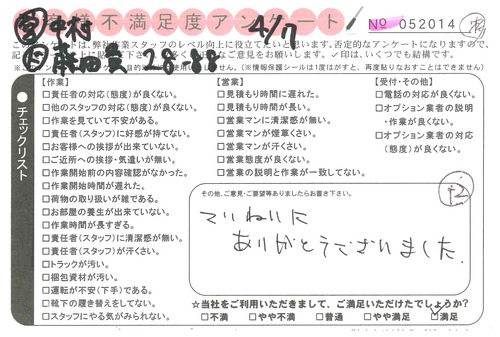 お客様不満足度アンケート
4/7
No 052014
中村
28-38
【作業】
□責任者の対応(態度)が良くない。
□他のスタッフの対応(態度)が良くない。
□作業を見ていて不安がある。
□責任者(スタッフ)に好感が持てない。
□お客様への挨拶が出来ていない。
□ご近所への挨拶・気遣いが無い。
□作業開始前の内容確認がなかった。
□作業開始時間が遅れた。
□荷物の取り扱いが雑である。
□お部屋の養生が出来ていない。
□作業時間が長すぎる。
□責任者(スタッフ)に清潔感が無い。
□責任者(スタッフ)が汗くさい。
□トラックが汚い。
□梱包資材が汚い。
□運転が不安(下手)である。
□靴下の履き替えをしてない。
□スタッフにやる気がみられない。
【営業】
□見積もり時間に遅れた。
□見積もり時間が長い。
□営業マンに清潔感が無い。
□営業マンが煙草くさい。
□営業マンが汗くさい。
□営業態度が良くない。
□営業の説明と作業が一致してない。
【受付・その他】
□電話の対応が良くない。
□オプション業者の説明
・作業が良くない。
□オプション業者の対応
(態度)が良くない。
●チェックリスト
その他、ご意見・ご要望等ありましたらお書き下さい。
ていねいに
ありがとうございました。
☆当社をご利用いただきまして、ご満足いただけたでしょうか?
□不満 □やや不満 □普通 □やや満足 ☑満足